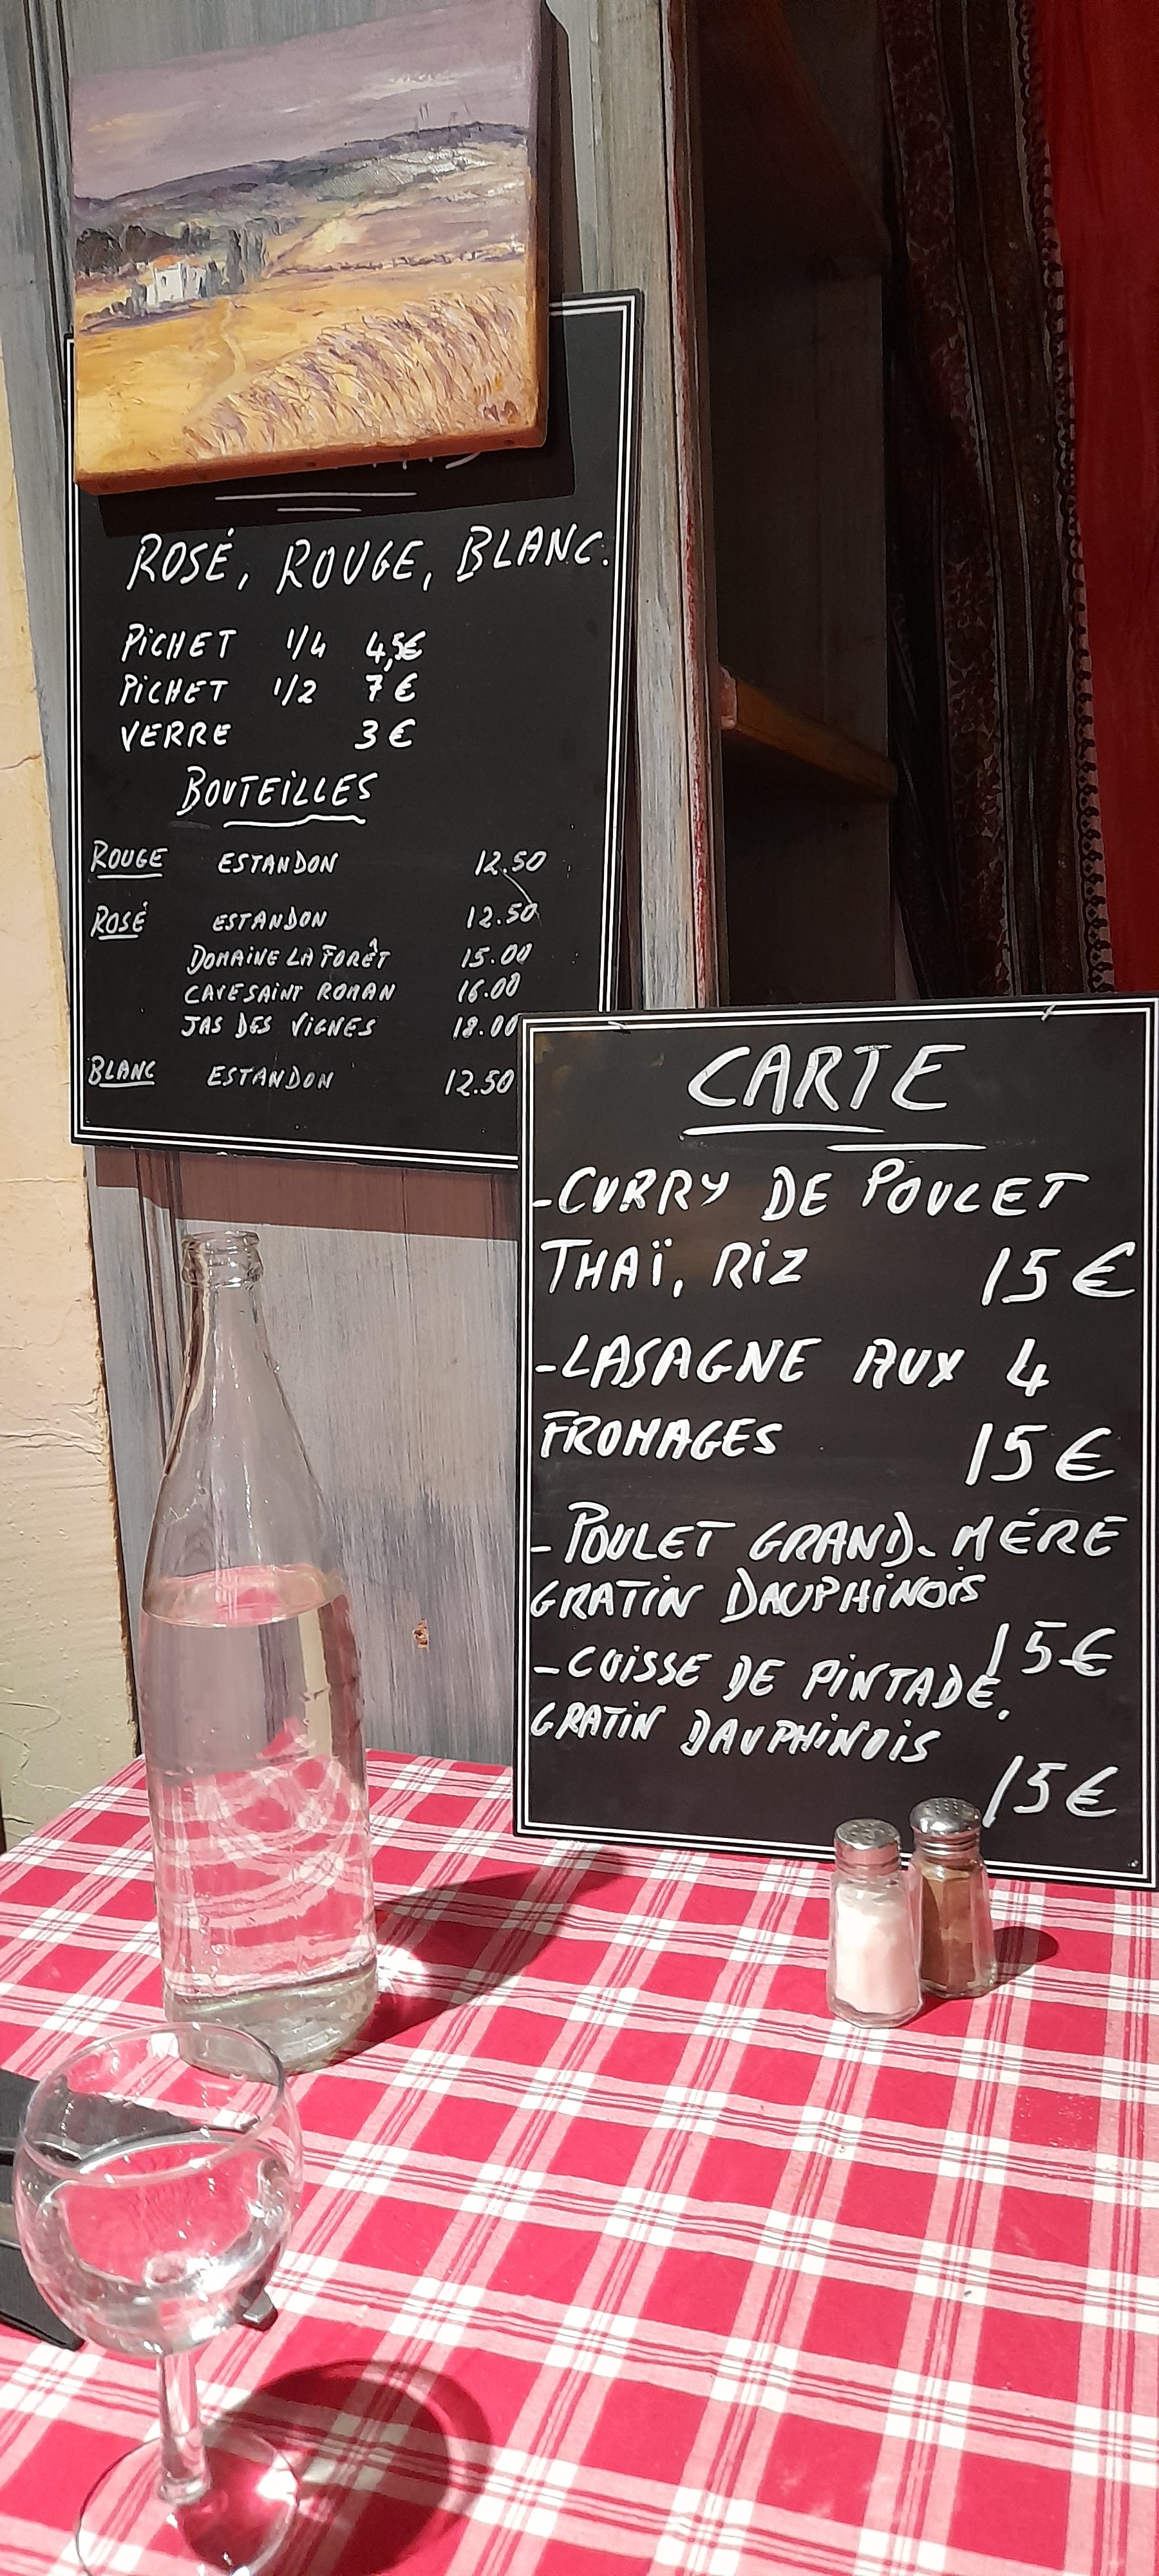 ROSÉ, ROUGE, BLANC.
PiCHET 1/4 4,5€
PiCHET 1/2 7€
VERRE 3€
BOUTEiLLES
ROUGE ESTANDON 12.50
ROSÉ ESTANDON 12.50
DOMAiNE LA FORÊT 15.00
CAVE SAiNT ROMAN 16.00
JAS DES ViGNES 18.00
BLANC ESTANDON 12.50
CARTE
-CURRY DE POULET
THAÏ, RiZ 15€
-LASAGNE AUX 4
FROMAGES 15€
- POULET GRAND-MÉRE
GRATiN DAUPHiNOiS
15€
-CUiSSE DE PiNTADE,
GRATiN DAUPHiNOiS
15€